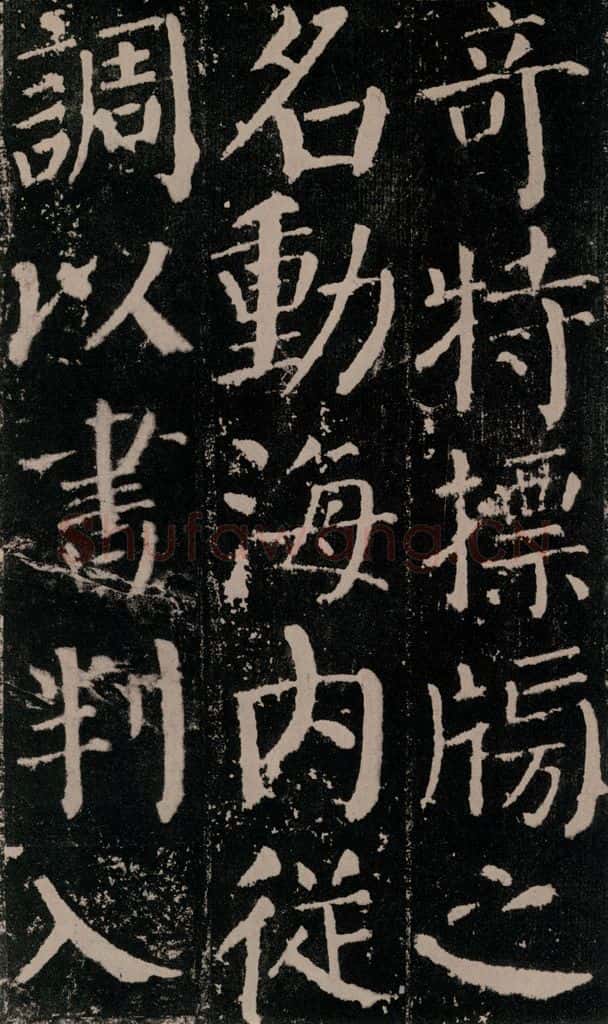 奇特標牓之
名動海内從
調以書判入
Shufawang.CN